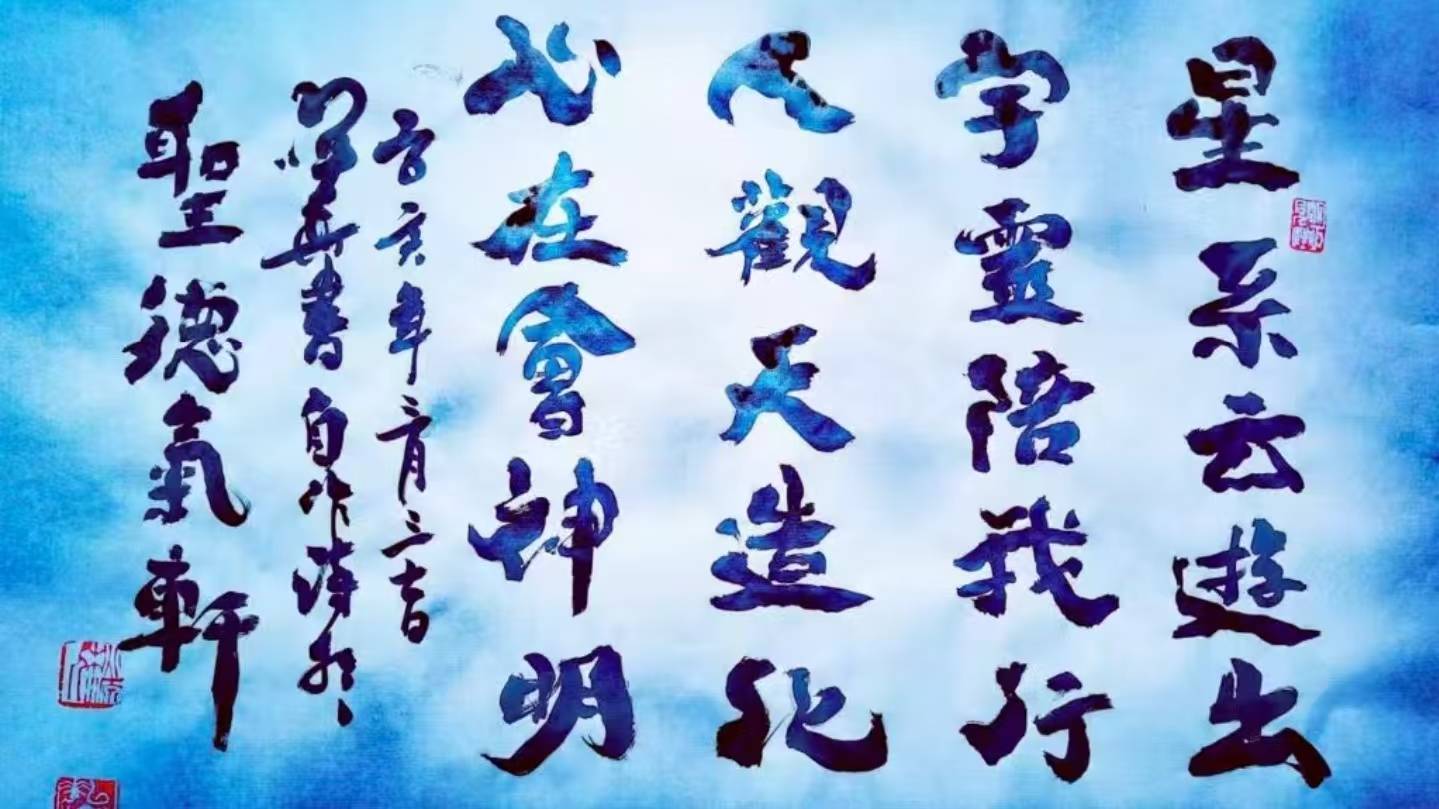 星系云遊出
宇靈陪我行
人觀天造化
心在會神明
亥年二月三吉
書自作詩於
聖德氣軒